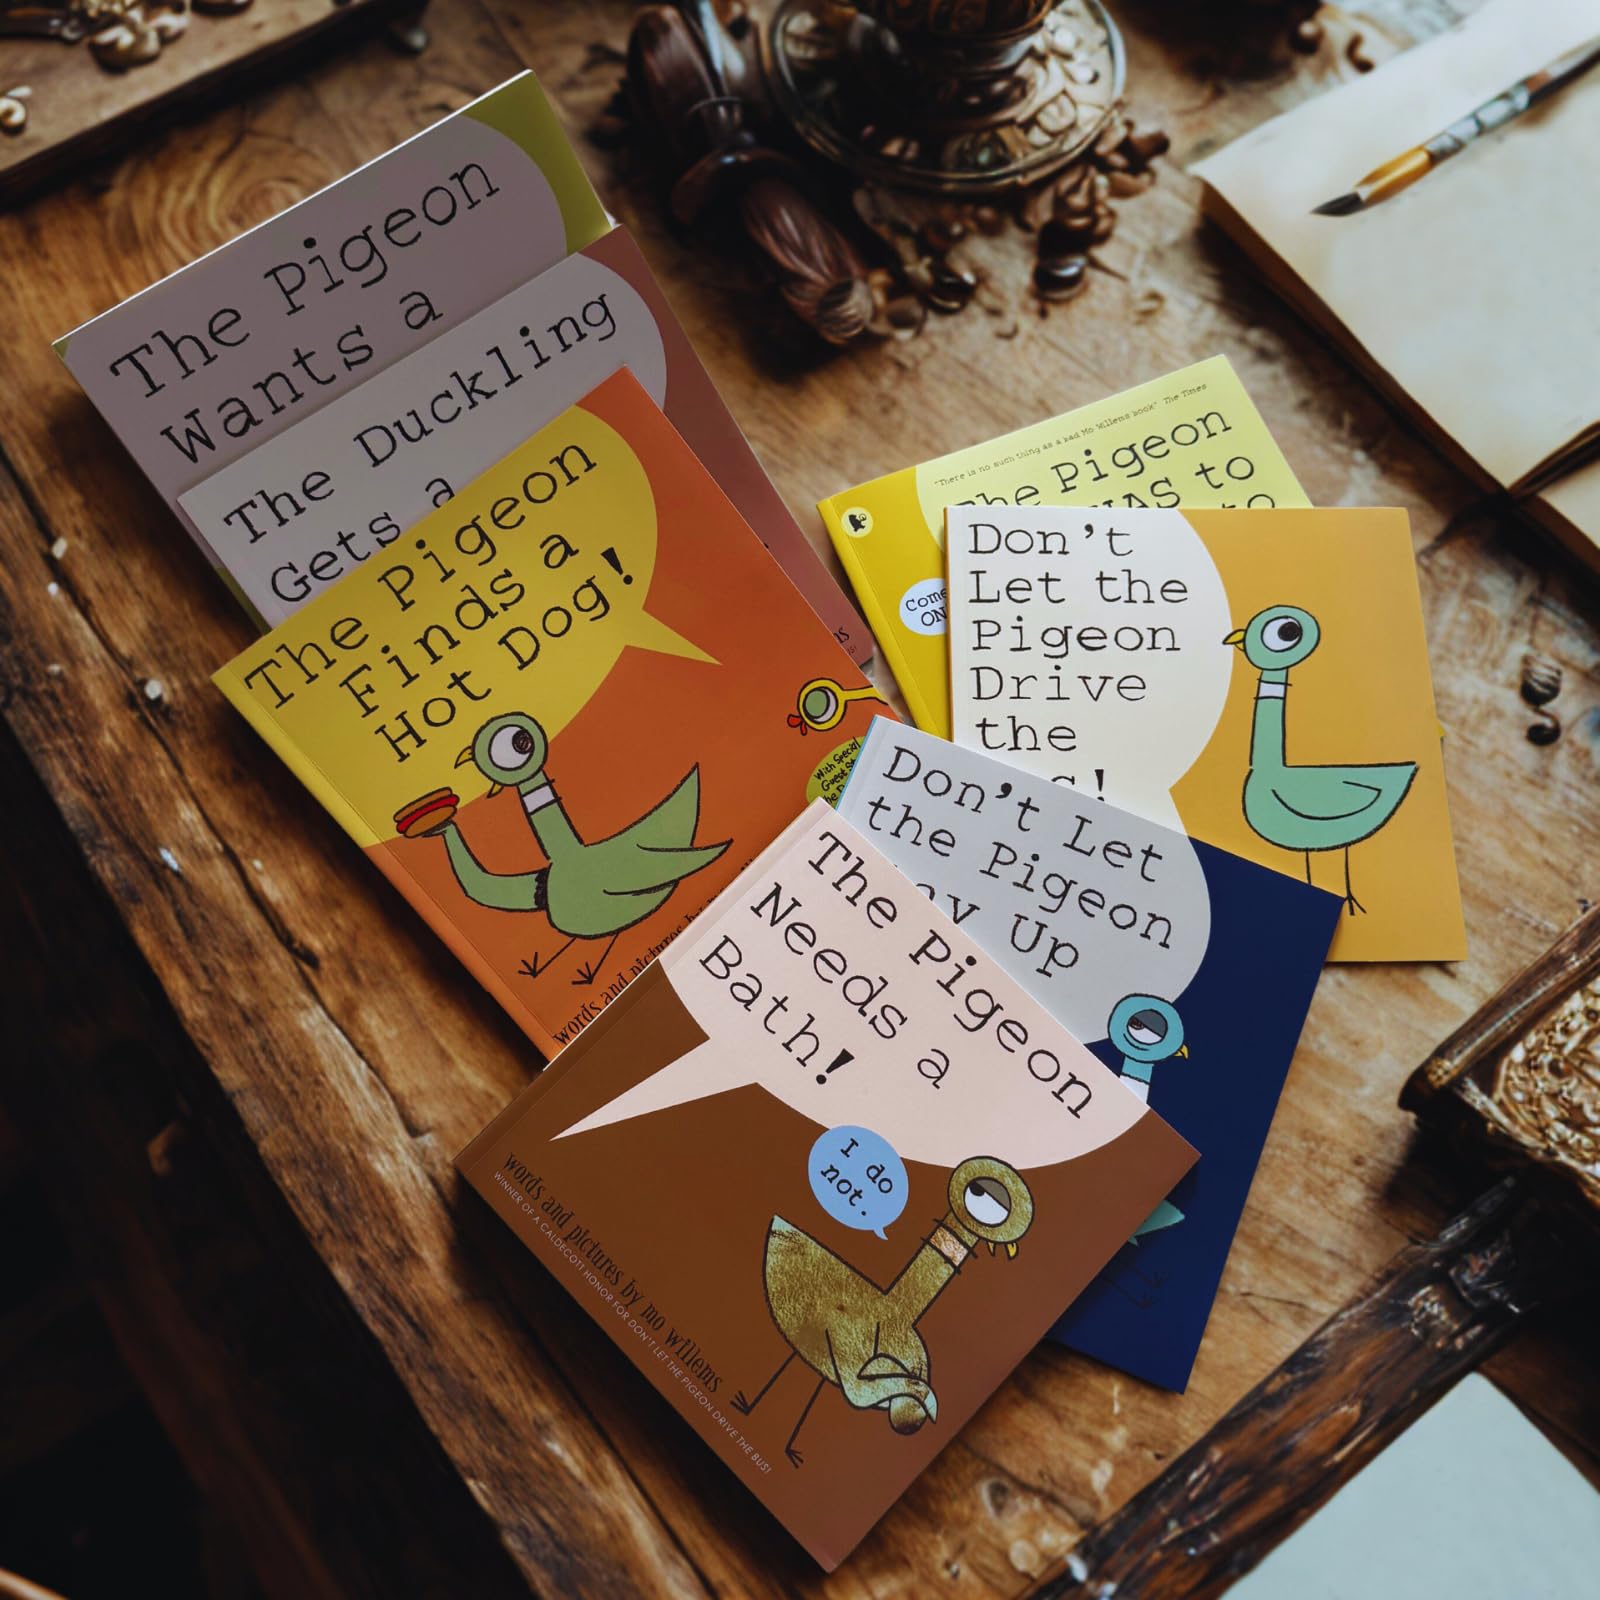 The Pigeon
Wants a
The Duckling
Gets a
The Pigeon
Finds a
Hot Dog!
With Special
Guest
words and pictures by
"There is no such thing as a bad Mo Willems book" The Times
The Pigeon
HAS to
to
Come
ON
Don't
Let the
Pigeon
Drive
the
Don't Let
the Pigeon
Up
The Pigeon
Needs a
Bath!
I do
not.
words and pictures by mo willems
WINNER OF A CALDECOTT HONOR FOR DON'T LET THE PIGEON DRIVE THE BUS!